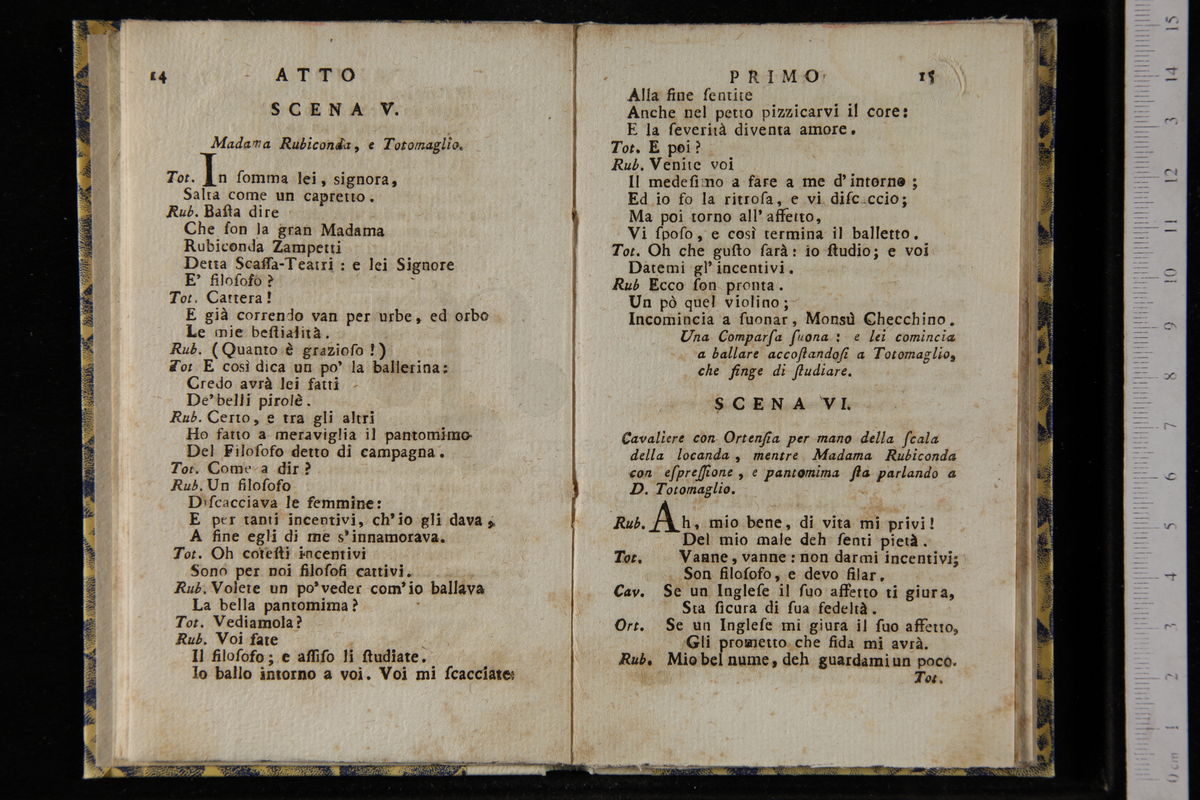 14 ATTO
SCENA V.
Madama Rubiconda, e Totomaglio.
Tot. In ſomma lei, signora,
Salta come un capretto.
Rub. Baſta dire
Che ſon la gran Madama
Rubiconda Zampetti
Detta Scaſſa-Teatri : e lei Signore
E' filoſofo ?
Tot. Cattera !
E già correndo van per urbe, ed orbo
Le mie beſtialità.
Rub. (Quanto è grazioſo !)
Tot E così dica un po' la ballerina:
Credo avrà lei fatti
De' belli pirolè.
Rub. Certo, e tra gli altri
Ho fatto a meraviglia il pantomimo
Del Filoſofo detto di campagna.
Tot. Come a dir ?
Rub. Un filoſofo
Diſcacciava le femmine:
E per tanti incentivi, ch'io gli dava,
A fine egli di me s'innamorava.
Tot. Oh coteſti incentivi
Sono per noi filoſofi cattivi.
Rub. Volete un po' veder com'io ballava
La bella pantomima ?
Tot. Vediamola ?
Rub. Voi fate
Il filoſofo ; e aſſiſo li ſtudiate.
Io ballo intorno a voi. Voi mi ſcacciate:
PRIMO 15
Alla fine ſentite
Anche nel petto pizzicarvi il core:
E la ſeverità diventa amore.
Tot. E poi ?
Rub. Venite voi
Il medeſimo a fare a me d'intorno ;
Ed io fo la ritroſa, e vi diſcaccio;
Ma poi torno all'affetto,
Vi ſpoſo, e così termina il balletto.
Tot. Oh che guſto ſarà : io ſtudio; e voi
Datemi gl'incentivi.
Rub Ecco ſon pronta.
Un pò quel violino ;
Incomincia a ſuonar, Monsù Checchino.
Una Comparſa ſuona : e lei comincia
a ballare accoſtandoſi a Totomaglio,
che finge di ſtudiare.
SCENA VI.
Cavaliere con Ortenſia per mano della ſcala
della locanda, mentre Madama Rubiconda
con eſpreſſione, e pantomima ſta parlando a
D. Totomaglio.
Rub. Ah, mio bene, di vita mi privi !
Del mio male deh ſenti pietà.
Tot. Vanne, vanne : non darmi incentivi;
Son filoſofo, e devo filar.
Cav. Se un Ingleſe il ſuo affetto ti giura,
Sta ſicura di ſua fedeltà.
Ort. Se un Ingleſe mi giura il ſuo affetto,
Gli prometto che fida mi avrà.
Rub. Mio bel nume, deh guardami un poco.
Tot.
0 cm 1 2 3 4 5 6 7 8 9 10 11 12 13 14 15